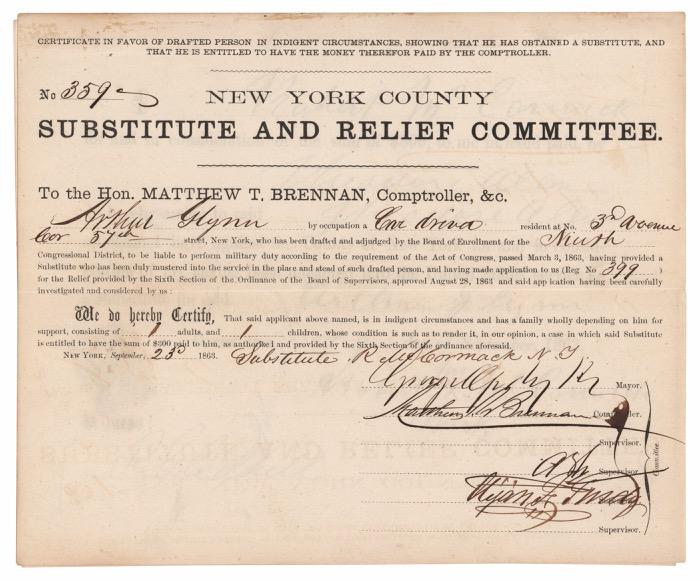 CERTIFICATE IN FAVOR OF DRAFTED PERSON IN INDIGENT CIRCUMSTANCES, SHOWING THAT HE HAS OBTAINED A SUBSTITUTE, AND
THAT HE IS ENTITLED TO HAVE THE MONEY THEREFOR PAID BY THE COMPTROLLER.
No 359
NEW YORK COUNTY
SUBSTITUTE AND RELIEF COMMITTEE.
To the Hon. MATTHEW T. BRENNAN, Comptroller, &c.
Arthur Glynn by occupation a Car driver resident at No. 3d Avenue
Cor 57th street, New York, who has been drafted and adjudged by the Board of Enrollment for the Ninth
Congressional District, to be liable to perform military duty according to the requirement of the Act of Congress, passed March 3, 1863, having provided a
Substitute who has been duly mustered into the service in the place and stead of such drafted person, and having made application to us (Reg No 399)
for the Relief provided by the Sixth Section of the Ordinance of the Board of Supervisors, approved August 28, 1863 and said application having been carefully
investigated and considered by us:
We do hereby Certify, That said applicant above named, is in indigent circumstances and has a family wholly depending on him for
support, consisting of 1 adults, and 1 children, whose condition is such as to render it, in our opinion, a case in which said Substitute
is entitled to have the sum of $300 paid to him, as authorized and provided by the Sixth Section of the ordinance aforesaid.
New York, September, 23d 1863. Substitute Cormack N. Y.
George Opdyke Mayor.
Matthew T. Brennan Comptroller.
Supervisor.
Supervisor.
Elijah F. Purdy
Supervisor.
Committee.